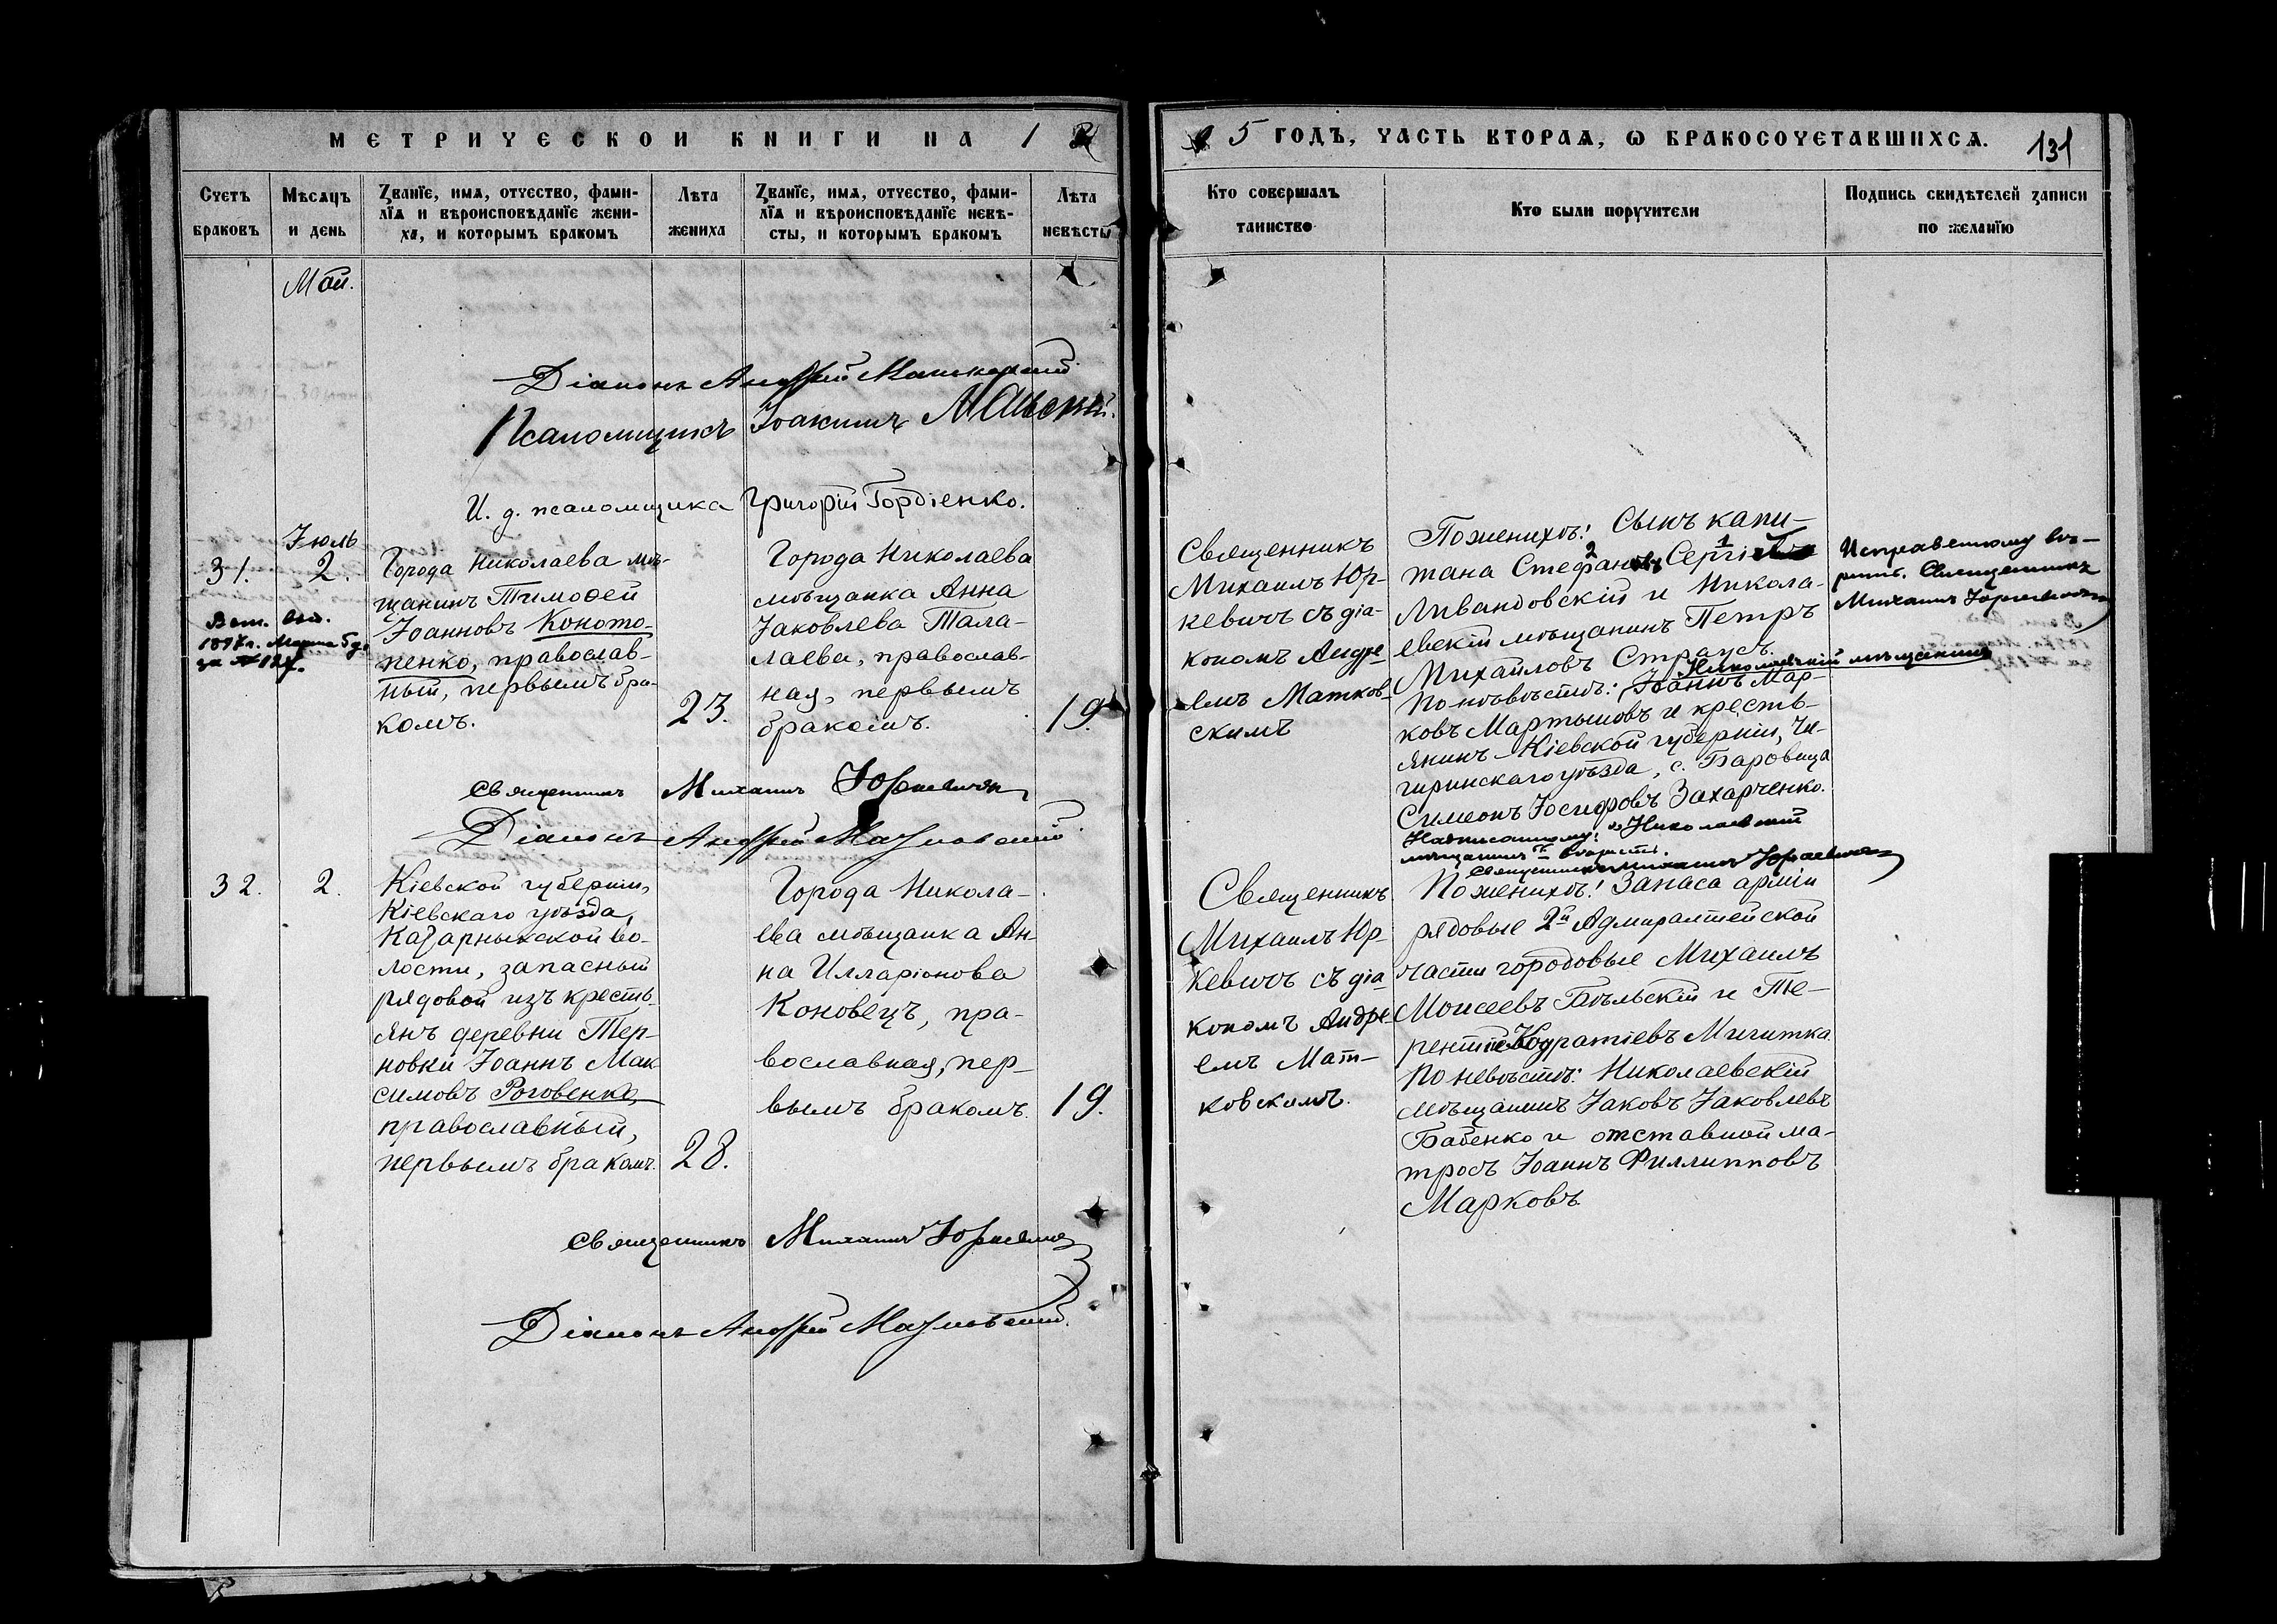 МЕТРИЧЕСКОЙ КНИГИ НА 1
5 ГОДЪ, ЧАСТЬ ВТОРАЯ, Ѡ БРАКОСОЧЕТАВШИХСЯ.
131
Счетъ браковъ
Мѣсяцъ и день
Званїе, имя, отчество, фами-
лїя и вѣроисповѣданїе жени-
ха, и которымъ бракомъ
Лѣта жениха
Званїе, имя, отчество, фами-
лїя и вѣроисповѣданїе невѣ-
сты, и которымъ бракомъ
Лѣта невѣсты
Кто совершалъ
таинство
Кто были поручители
Подпись свидѣтелей записи
по желанїю
Май.
Діаконъ Андрей Матковскій
Псаломщикъ Іоакимъ
И. д. псаломщика Григорій Гордіенко.
Іюль
31.
2.
Выд.
1897 г. Марта 5 д.
за № 127.
Города Николаева мѣ-
щанинъ Тимоѳей
Іоанновъ Коното-
пенко, православ-
ный, первымъ бра-
комъ.
23.
Города Николаева
мѣщанка Анна
Іаковлева Тала-
лаева, православ-
ная, первымъ
бракомъ.
19.
Священникъ
Михаилъ Юр-
кевичъ съ діа-
кономъ Андре-
емъ Матков-
скимъ
По женихѣ: Сынъ капи-
тана Стефанъ 2 Сергіевъ 1
Ливандовскій и Никола-
евскій мѣщанинъ Петръ
Михайловъ Страусъ.
Николаевскій мѣщанинъ
По невѣстѣ: Іоаннъ Мар-
ковъ Мартыновъ и кресть-
янинъ Кіевской губерніи, Чи-
гиринскаго уѣзда, с. Баровица
Симеонъ Іосифовъ Захарченко.
Надписанному: "Николаевскій
мѣщанинъ" вѣрить.
Священникъ Михаилъ Юркевичъ
Исправленному вѣ-
рить. Священникъ
Михаилъ Юркевичъ
Священникъ Михаилъ Юркевичъ
Діаконъ Андрей Матковскій
32.
2.
Кіевской губерніи,
Кіевскаго уѣзда,
Кагарлыкской во-
лости, запасный
рядовой изъ кресть-
янъ деревни Тер-
новки Іоаннъ Мак-
симовъ Роговенко,
православный,
первымъ бракомъ.
28.
Города Никола-
ева мѣщанка Ан-
на Илларіонова
Коновецъ, пра-
вославная, пер-
вымъ бракомъ.
19.
Священникъ
Михаилъ Юр-
кевичъ съ діа-
кономъ Андре-
емъ Мат-
ковскимъ.
По женихѣ: Запаса арміи
рядовые 2й Адмиралтейской
части городовые Михаилъ
Моисеевъ Бѣльскій и Те-
рентій Кодратіевъ Мигитка.
По невѣстѣ: Николаевскій
мѣщанинъ Іаковъ Іаковлевъ
Бабенко и отставной ма-
тросъ Іоаннъ Филлипповъ
Марковъ.
Священникъ Михаилъ Юркевичъ
Діаконъ Андрей Матковскій.